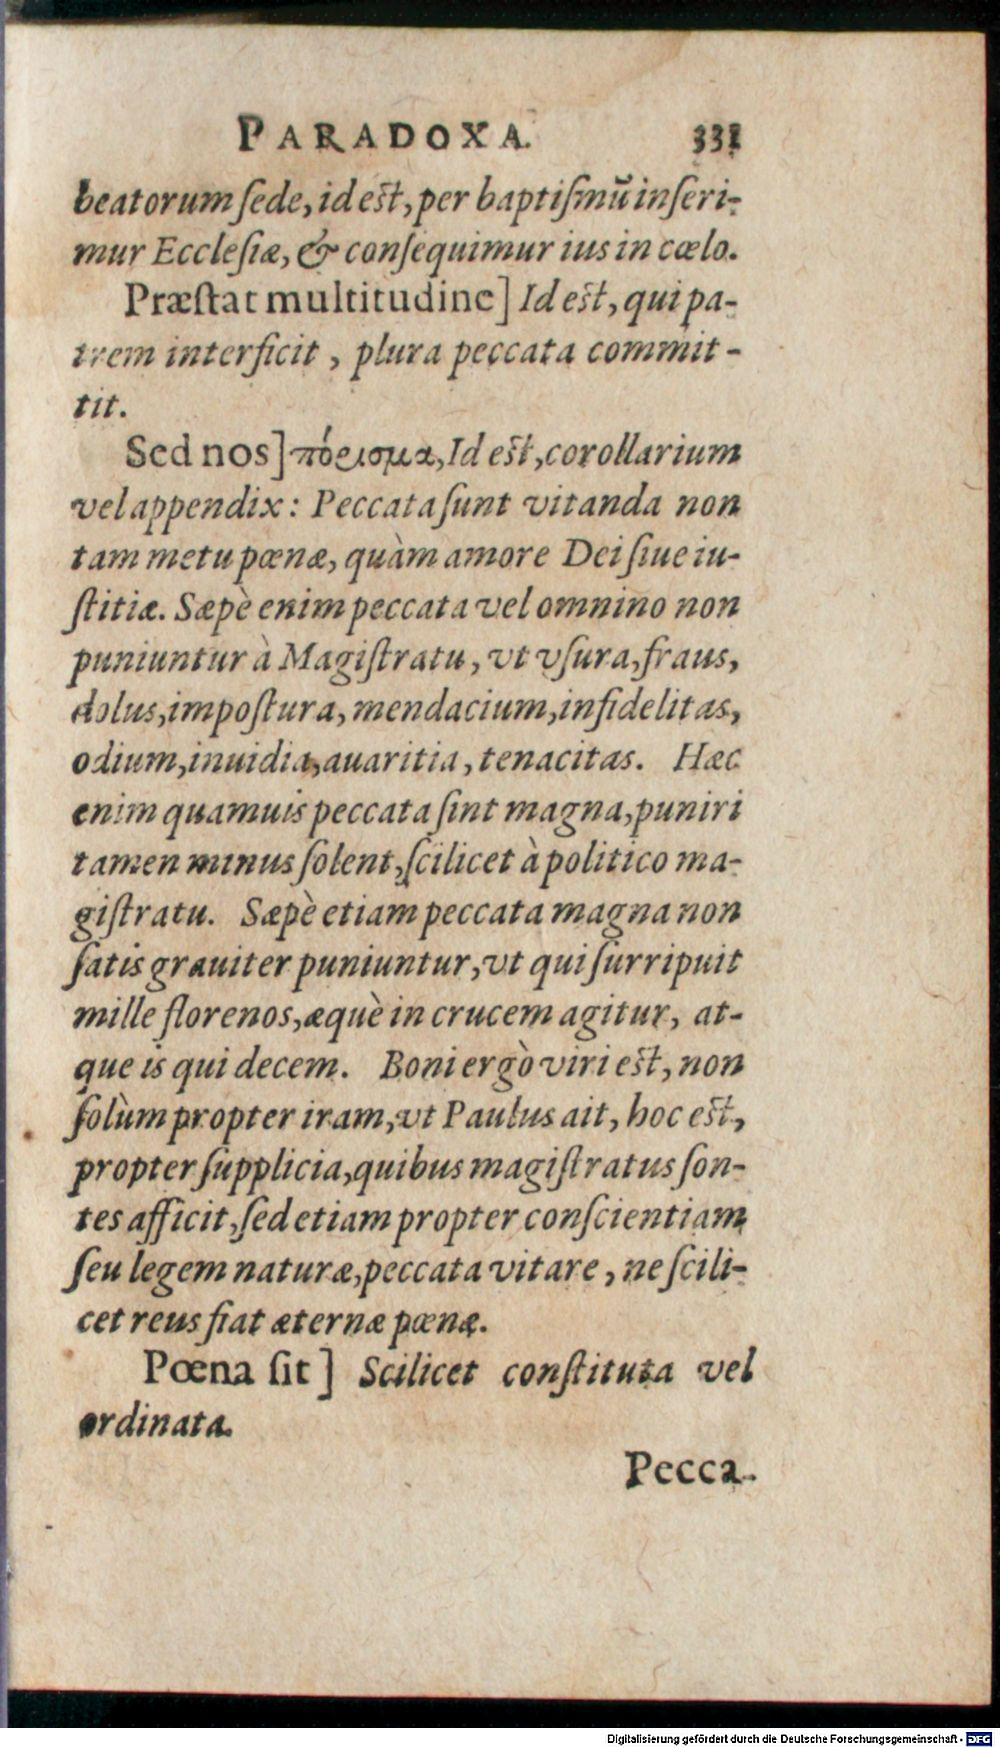 PARADOXA. 331
beatorum ſede, id eſt, per baptiſmũ inſeri-
mur Eccleſiæ, & conſequimur ius in cœlo.
Præſtat multitudine] Id eſt, qui pa-
trem interficit, plura peccata commit-
tit.
Sed nos] πόρισμα, Id eſt, corollarium
vel appendix: Peccata ſunt vitanda non
tam metu pœnæ, quàm amore Dei ſiue iu-
ſtitiæ. Sæpè enim peccata vel omnino non
puniuntur à Magiſtratu, vt vſura, fraus,
dolus, impoſtura, mendacium, infidelitas,
odium, inuidia, auaritia, tenacitas. Hæc
enim quamuis peccata ſint magna, puniri
tamen minus ſolent, ſcilicet à politico ma-
giſtratu. Sæpè etiam peccata magna non
ſatis grauiter puniuntur, vt qui ſurripuit
mille florenos, æquè in crucem agitur, at-
que is qui decem. Boni ergò viri eſt, non
ſolùm propter iram, vt Paulus ait, hoc eſt,
propter ſupplicia, quibus magiſtratus ſon-
tes afficit, ſed etiam propter conſcientiam
ſeu legem naturæ, peccata vitare, ne ſcili-
cet reus fiat æternæ pœnæ.
Pœna ſit] Scilicet conſtituta vel
ordinata.
Pecca-
Digitalisierung gefördert durch die Deutsche Forschungsgemeinschaft - DFG